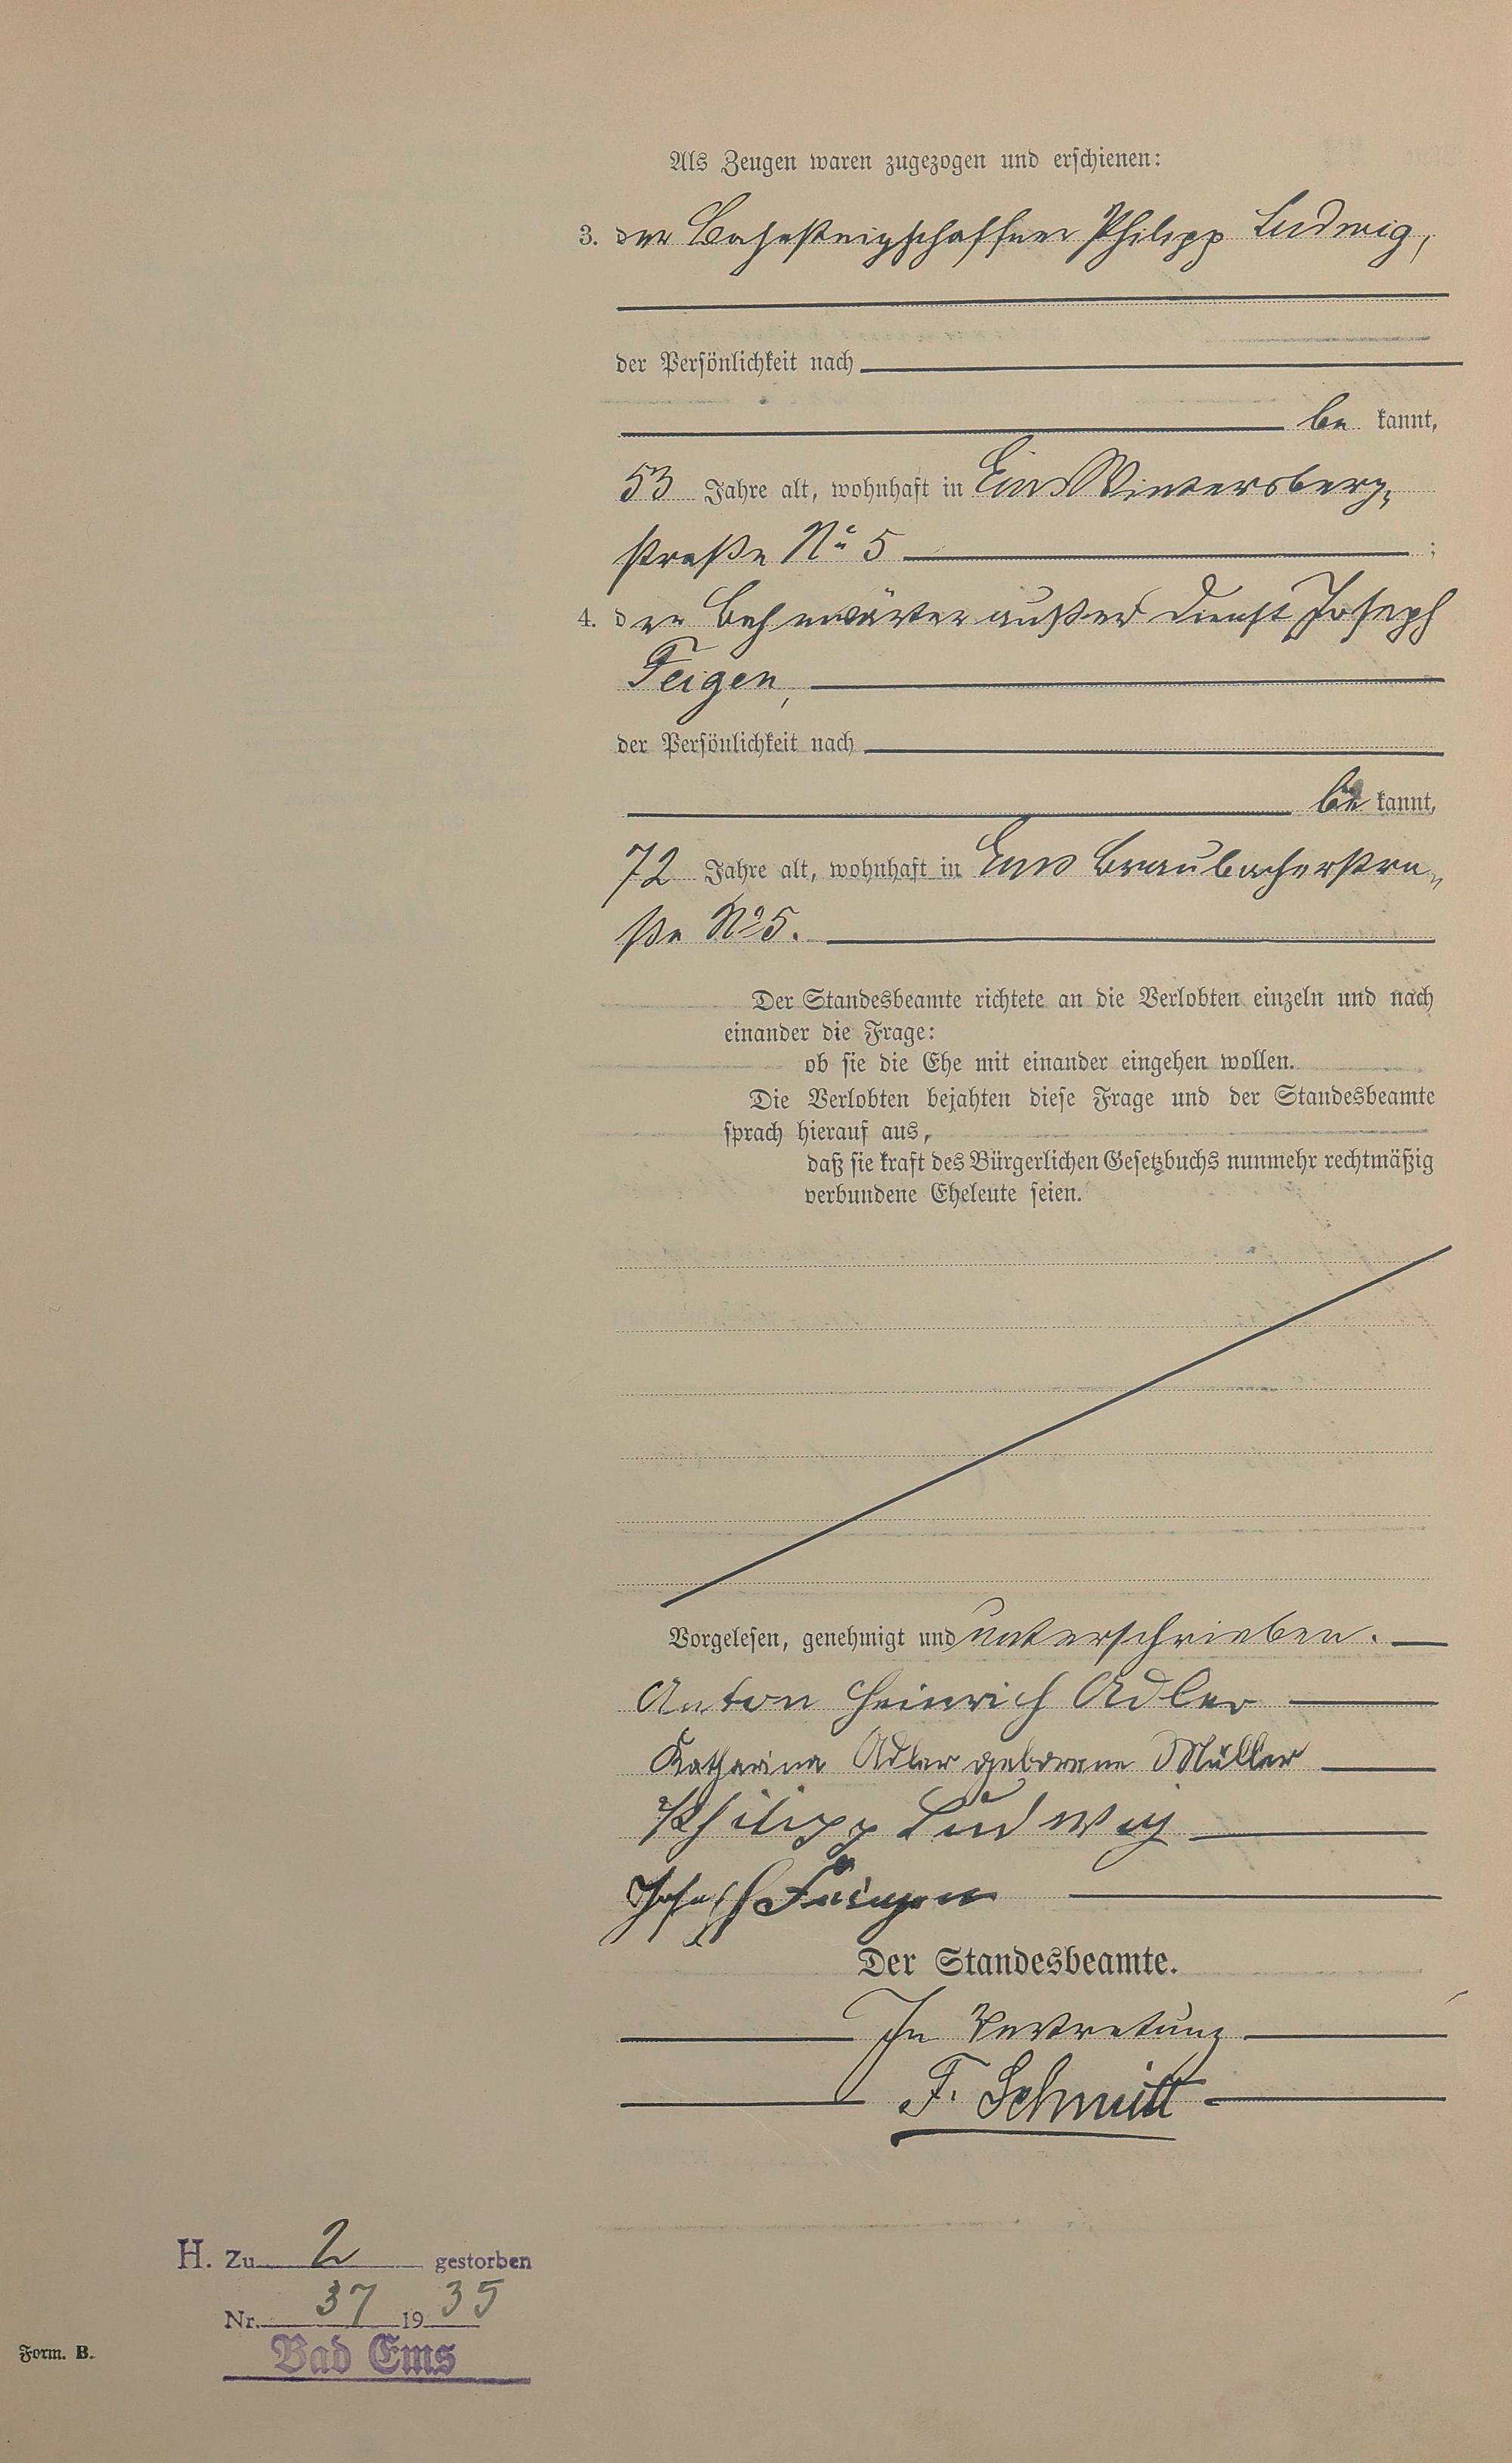 Als Zeugen waren zugezogen und erschienen:
3. der Bahnsteigschaffner Philipp Ludwig,
der Persönlichkeit nach
be kannt,
53 Jahre alt, wohnhaft in Ems Wintersberg-
straße No 5 ;
4. der Bahnwärter außer Dienst Joseph
Feigen,
der Persönlichkeit nach
be kannt,
72 Jahre alt, wohnhaft in Ems Braubacherstra-
ße No 5.
Der Standesbeamte richtete an die Verlobten einzeln und nach
einander die Frage:
ob sie die Ehe mit einander eingehen wollen.
Die Verlobten bejahten diese Frage und der Standesbeamte
sprach hierauf aus,
daß sie kraft des Bürgerlichen Gesetzbuchs nunmehr rechtmäßig
verbundene Eheleute seien.
Vorgelesen, genehmigt und unterschrieben.
Anton Heinrich Adler
Katharina Adler geborene Müller
Philipp Ludwig
Joseph Feigen
Der Standesbeamte.
In Vertretung
F. Schmitt
H. Zu 2 gestorben
Nr. 37 1935
Bad Ems
Form. B.